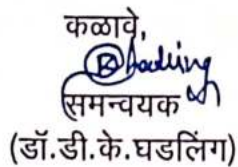 कळावे,
समन्वयक
(डॉ.डी.के.घडलिंग)